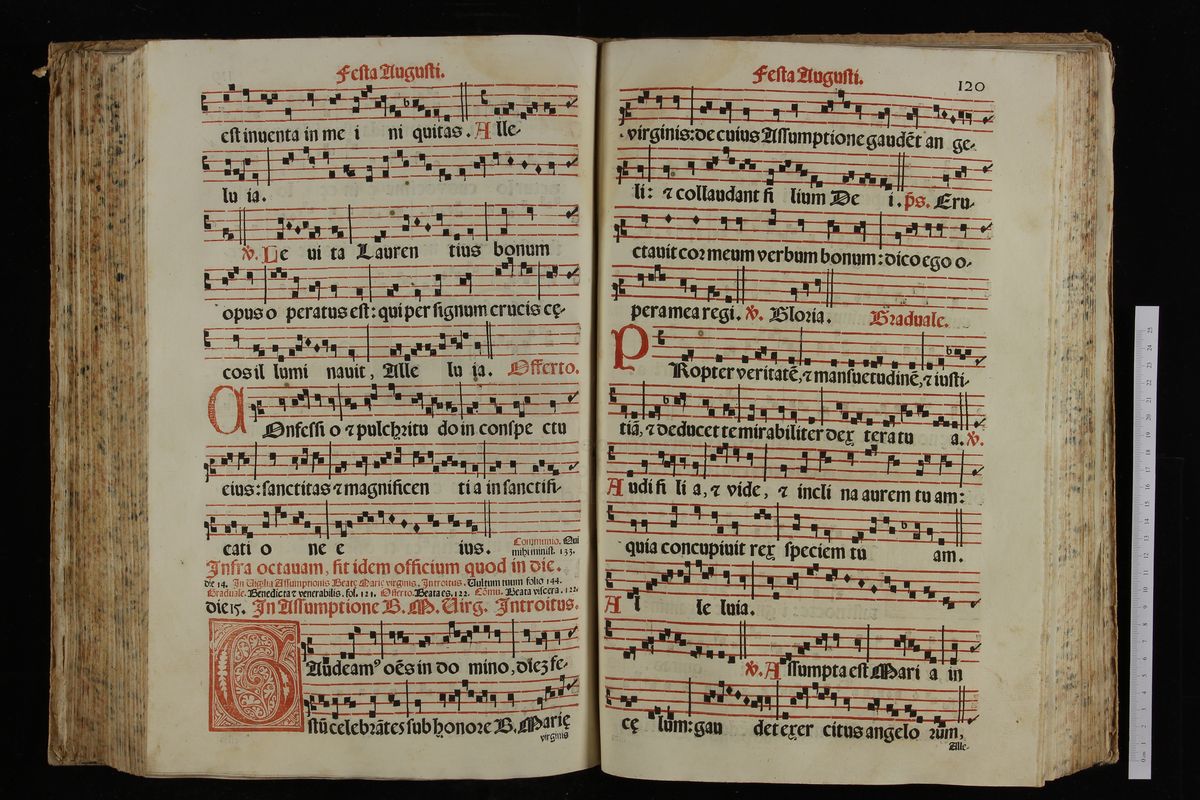 Festa Augusti.
est inuenta in me i ni quitas. Alle-
lu ia.
℣. Le ui ta Lauren tius bonum
opus o peratus est: qui per signum crucis cę-
cos il lumi nauit, Alle lu ia. Offerto.
COnfessi o ⁊ pulchritu do in conspe ctu
eius: sanctitas ⁊ magnificen ti a in sanctifi-
cati o ne e ius. Communio. Qui
mihi minist. 133.
Infra octauam, fit idem officium quod in die.
die 14. In Vigilia Assumptionis Beatę Marię virginis. Introitus. Vultum tuum folio 144.
Graduale. Benedicta ⁊ venerabilis. fol. 121. Offerto. Beata es. 122. Cōmu. Beata viscera. 122.
die 15. In Assumptione B. M. Virg. Introitus.
GAudeamꝰ oēs in do mino, diē fe-
stū celebrātes sub honore B. Marię
virginis
Festa Augusti.
120
virginis: de cuius Assumptione gaudēt an ge-
li: ⁊ collaudant fi lium De i. ps. Eru-
ctauit cor meum verbum bonum: dico ego o-
pera mea regi. ℣. Gloria. Graduale.
PRopter veritatē, ⁊ mansuetudinē, ⁊ iusti-
tiā, ⁊ deducet te mirabiliter dex tera tu a. ℣.
Audi fi li a, ⁊ vide, ⁊ incli na aurem tu am:
quia concupiuit rex speciem tu am.
Al le luia.
℣. Assumpta est Mari a in
cę lum: gau det exer citus angelo rum,
Alle-